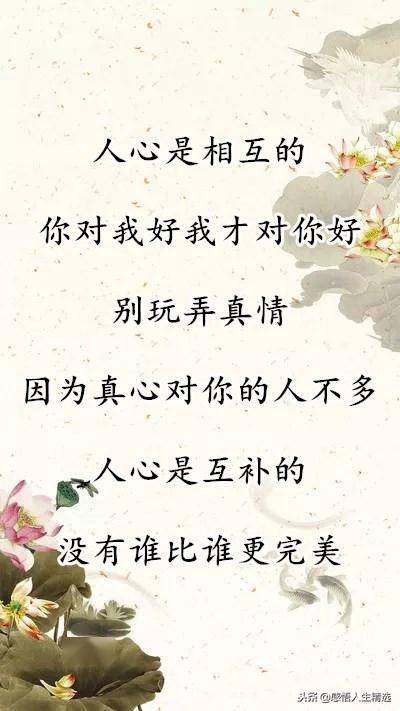 人心是相互的
你对我好我才对你好
别玩弄真情
因为真心对你的人不多
人心是互补的
没有谁比谁更完美
头条 @感悟人生精选